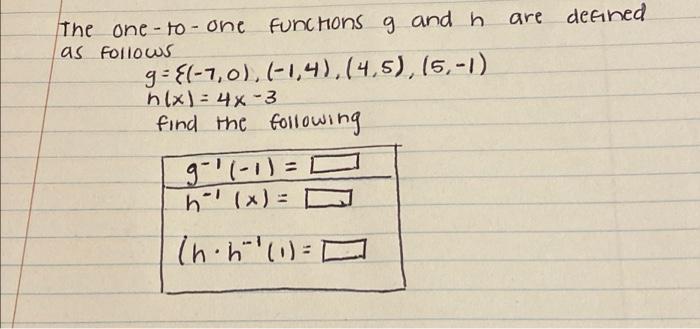 The one-to-one functions g and h are defined
as follows
g={(-7,0), (-1,4), (4,5), (5,-1)
h(x) = 4x-3
find the following
g⁻¹(-1) = □
h⁻¹ (x) = □
(h·h⁻¹(1) = □